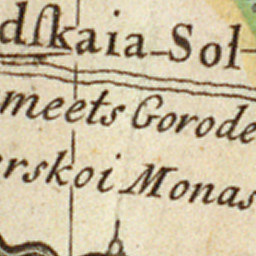 dſkaia-Sol-
meets Gorode
erskoi Monas